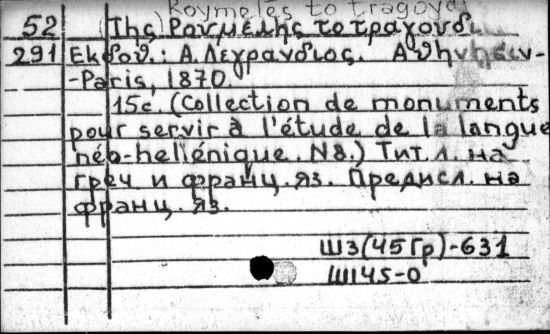 Roymelēs to tragoyd
52 (Της) Ρουμελης το τραγουδι
291 Εκδοθ.: Α. Λεγρανδιος. Αθηνησιν-
-Paris, 1870.
15с. (Collection de monuments
pour servir à l'étude de la langue
néo-hellénique. N8.) Тит. л. на
греч и франц. яз. Предисл. на
франц. яз.
Ш3(45Гр)-631
Ш145-0